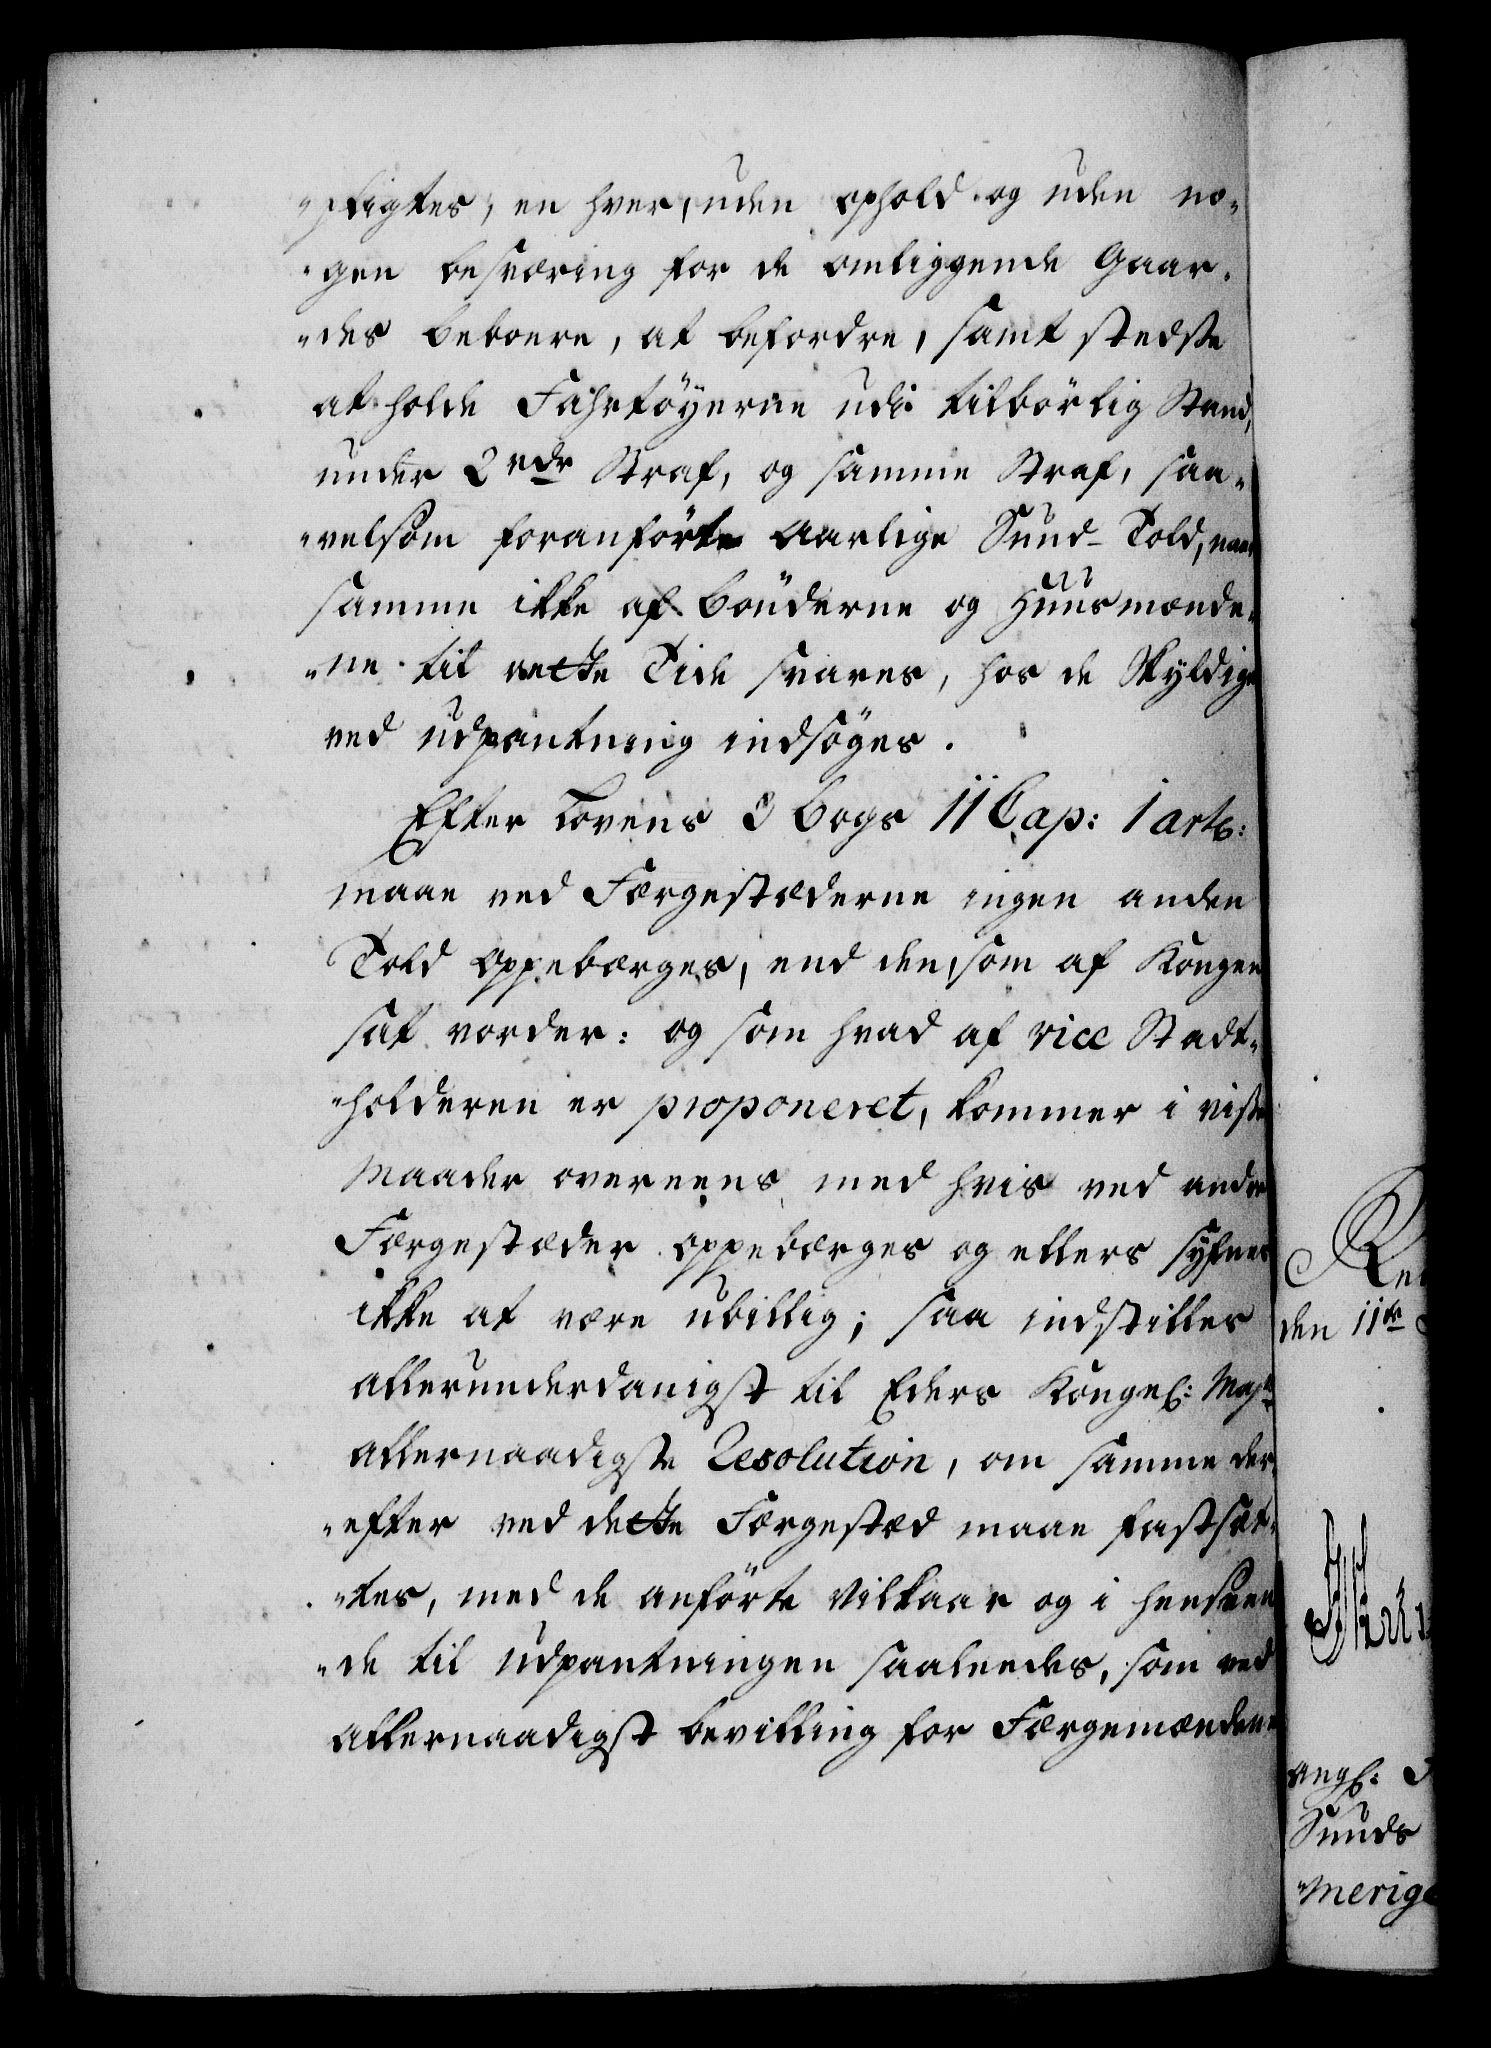 "pligtes, en hver, uden ophold og uden no-
"gen besværing for de omliggende Gaar-
"des beboere, at befordre, samt stedse
at holde Fahrtöyerne udi tilbörlig Stand,
under 2 rdr Straf, og samme Straf, saa-
"velsom foranförte aarlige Sund-Told, naar
samme ikke af Bönderne og Huusmænde-
"ne til rette Tide svares, hos de Skyldige
ved udpantning indsöges.
Efter Lovens 3 Bogs 11 Cap: 1 art:
maae ved Færgestæderne ingen anden
Told oppebærges, end den, som af Kongen
sat vorder: og som hvad af vice Stadt-
"holderen er proponeret, kommer i visse
Maader overeens med hvis ved andre
Færgestæder oppebærges og ellers synes
ikke at være ubillig; saa indstilles
allerunderdanigst til Eders Kongel: Mayts
allernaadigste Resolution, om samme der-
"efter ved dette Færgestæd maae fastsæt-
"tes, med de anförte Vilkaar og i henseen-
"de til udpantningen saaleedes, som ved
allernaadigst bevilling for Færgemændene
den 11te
ang:
Sunds
"merige